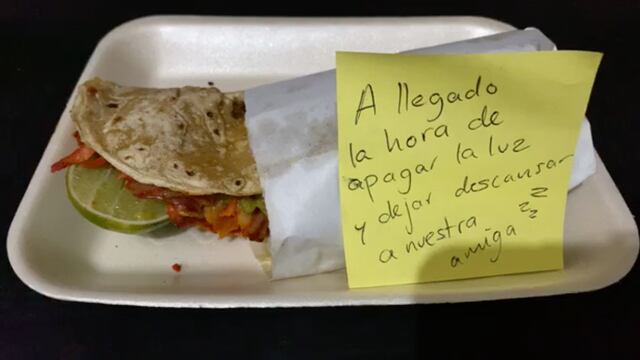 A llegado
la hora de
apagar la luz
y dejar descansar
a nuestra zzz
amiga